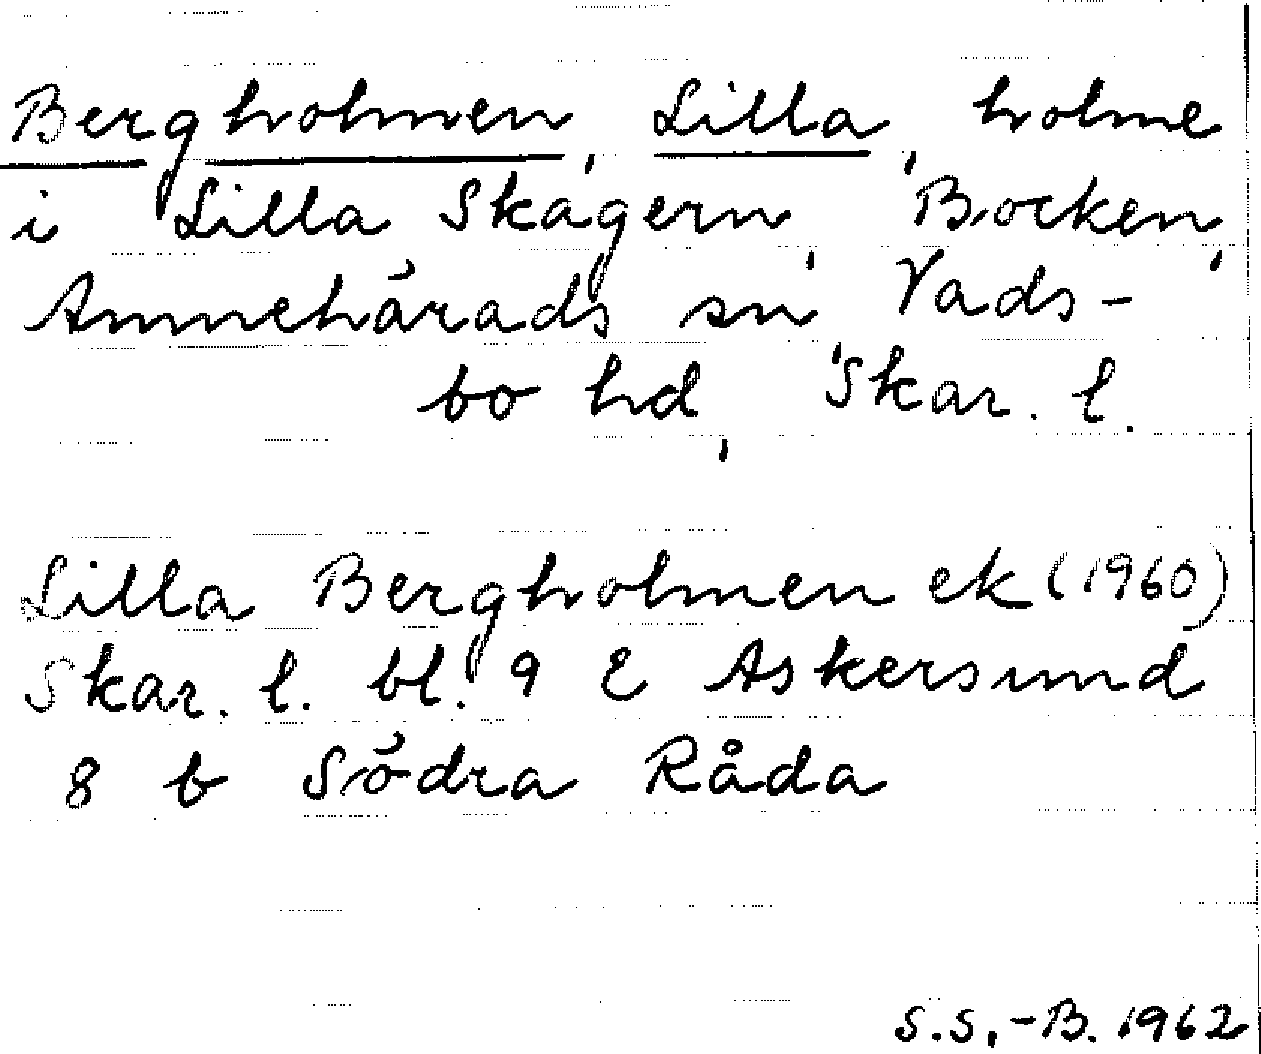 Bergholmen, Lilla, holme
i Lilla Skagern, Bocken,
Amnehärads sn, Vads-
bo hd, Skar. l.
Lilla Bergholmen ek (1960)
Skar. l. bl. 9 E Askersund
8 b Södra Råda
S.S.-B. 1962